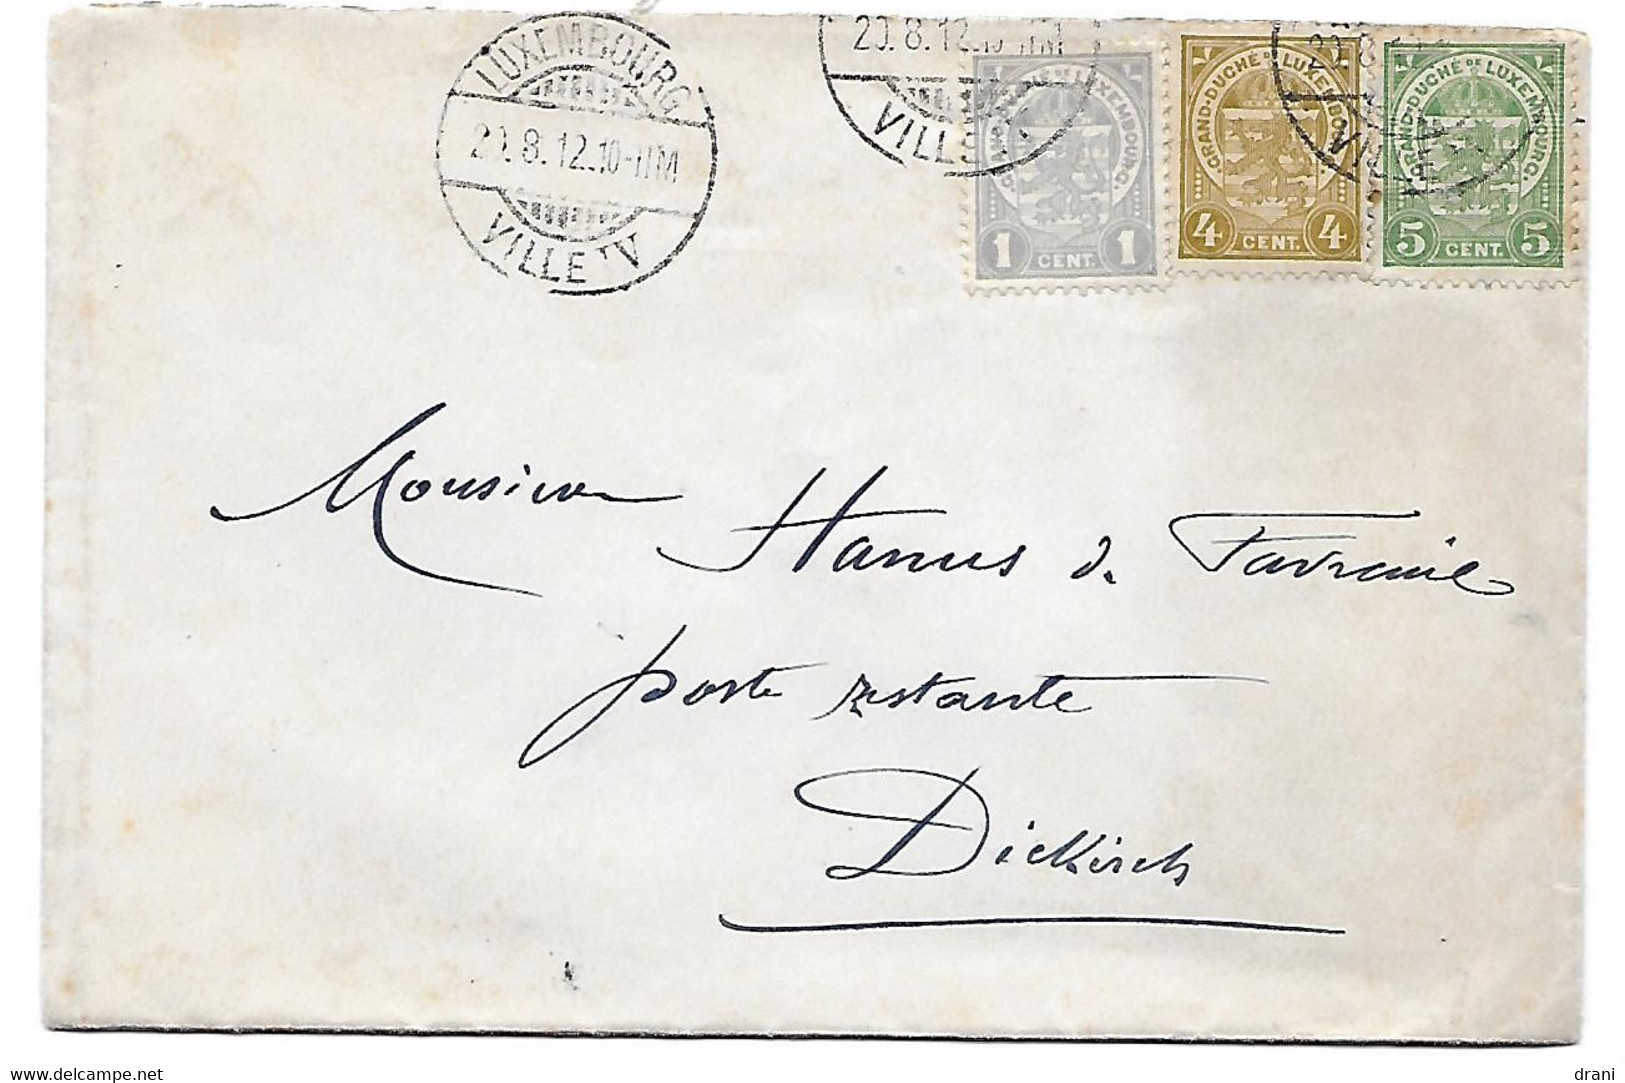 LUXEMBOURG
20.8.12.10-11M
VILLE IV
20.8.12.10-11M
VILLE
20.8.
GRAND-DUCHÉ DE LUXEMBOURG.
1 CENT. 1
GRAND-DUCHÉ DE LUXEMBOURG.
4 CENT. 4
GRAND-DUCHÉ DE LUXEMBOURG.
5 CENT. 5
Monsieur Hanus de
poste restante
Diekirch
www.delcampe.net
drani